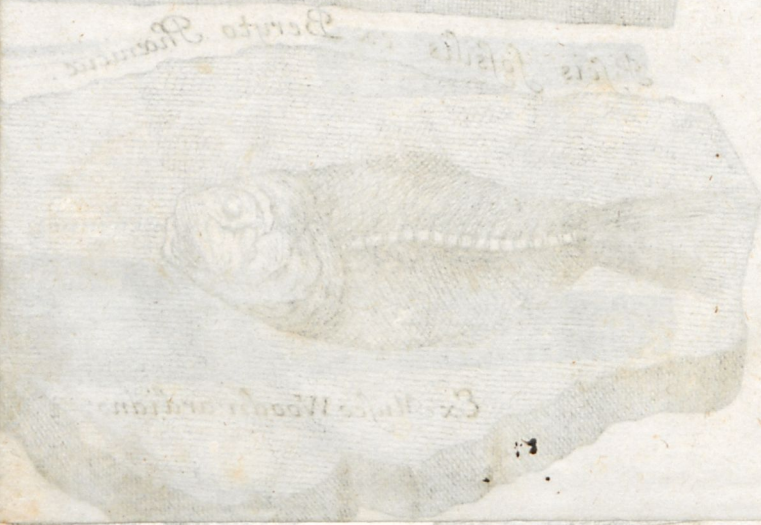 Piscis fossilis ex Beryto Phœniciæ.
Ex Museo Woodwardiano